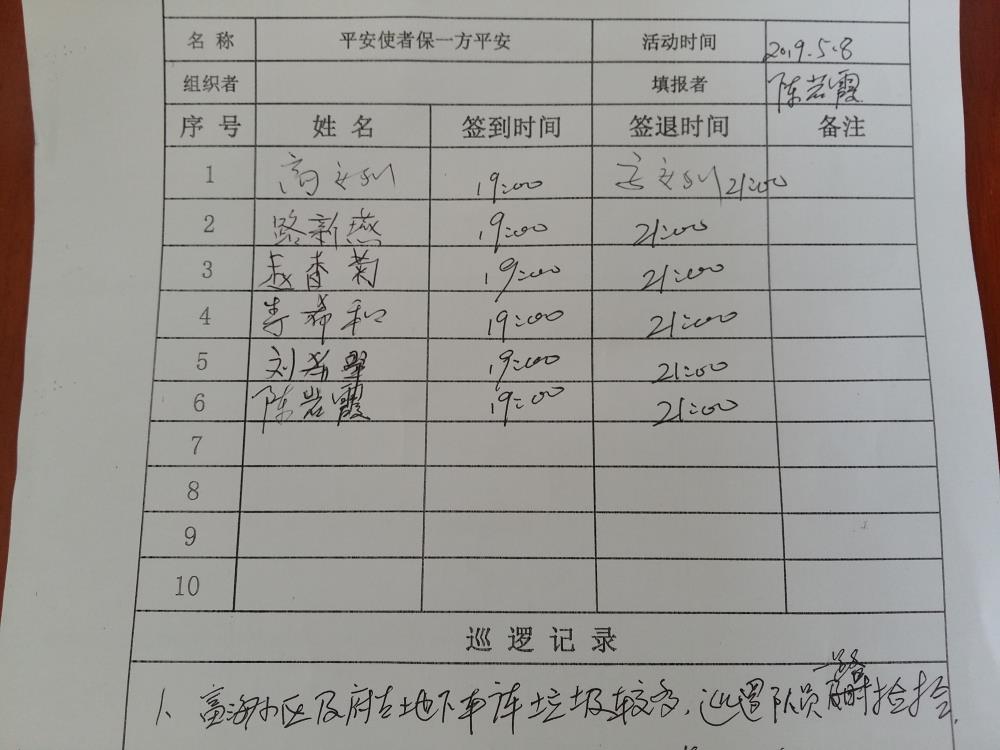 名 称 平安使者保一方平安 活动时间 2019.5.8
组织者 填报者 陈岩霞
序 号 姓 名 签到时间 签退时间 备注
1 高 19:00 21:00
2 路新燕 19:00 21:00
3 赵香菊 19:00 21:00
4 李希和 19:00 21:00
5 刘希 19:00 21:00
6 陈岩霞 19:00 21:00
7
8
9
10
巡 逻 记 录
一路
1、富海小区及府右地下车库垃圾较多,巡逻队员及时捡拾.